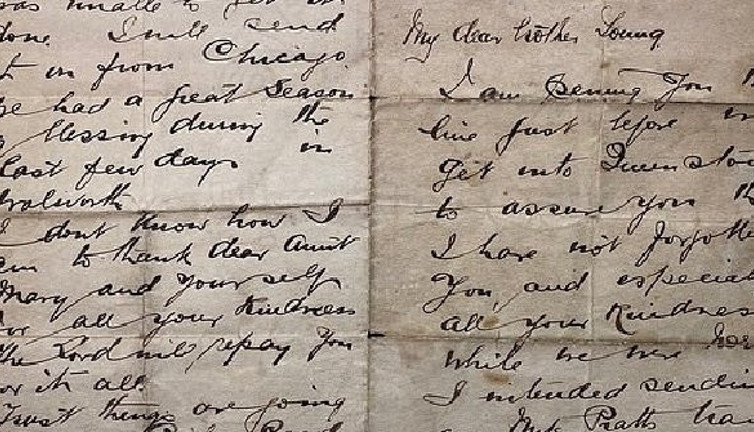 was unable to get it
done. I will send
it on from Chicago
We had a great Season
blessing during the
last few days in
Walworth
I dont know how I
am to thank dear Aunt
Mary and yourself
for all your kindness
The Lord will repay you
for it all.
Trust things are going
My dear Brother Young
I am penning you
line just before
get into Queenstow
to assure you
I have not forgotte
You, and especial
all your kindnes
while we were
I intended sendin
Mr Pratts